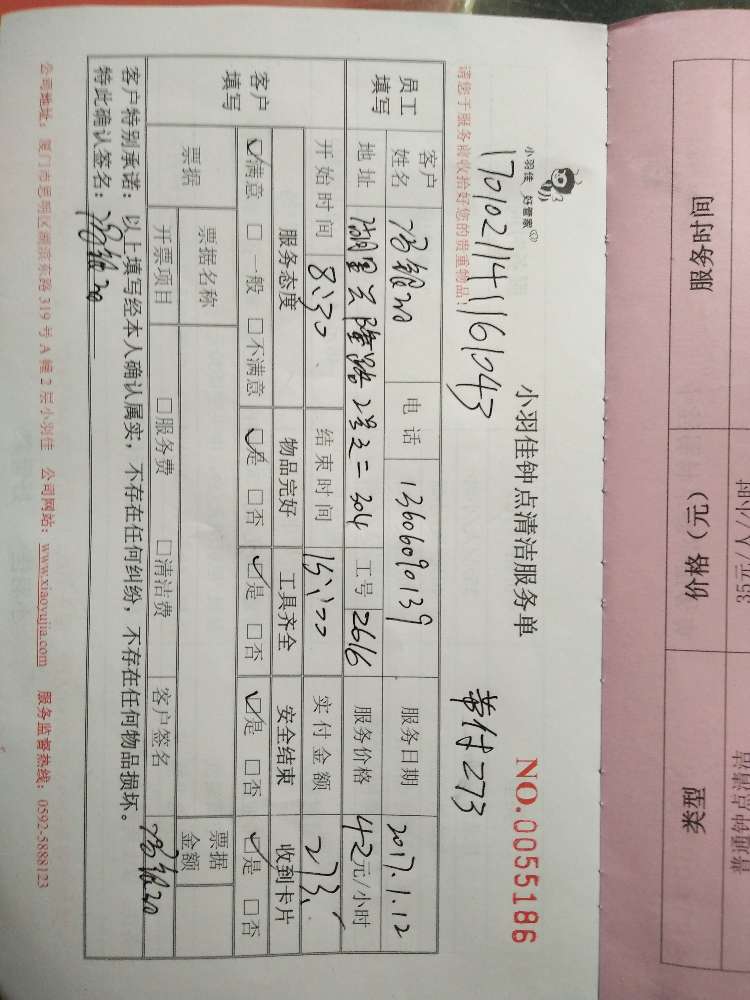 小羽佳 好管家
小羽佳钟点清洁服务单
NO.0055186
170102114116043
273
请您于服务前收拾好您的贵重物品！
员工填写
客户姓名
电话 13606090139
服务日期 2017.1.12
地址 湖里兴隆路
304
工号 2616
服务价格 42元/小时
客户填写
开始时间 8:30
结束时间 15:00
实付金额 273
服务态度 物品完好 工具齐全 安全结束 收到卡片
☑满意 □一般 □不满意 ☑是 □否 ☑是 □否 ☑是 □否 ☑是 □否
票据
票据名称
票据金额
开票项目 □服务费 □清洁费
客户签名
客户特别承诺：以上填写经本人确认属实，不存在任何纠纷，不存在任何物品损坏。
特此确认签名：
公司地址：厦门市思明区湖滨东路 319 号 A 幢 2 层小羽佳 公司网站：www.xiaoyujia.com 服务监督热线：0592-5888123
服务时间 价格（元） 类型
35元/人/小时 普通钟点清洁